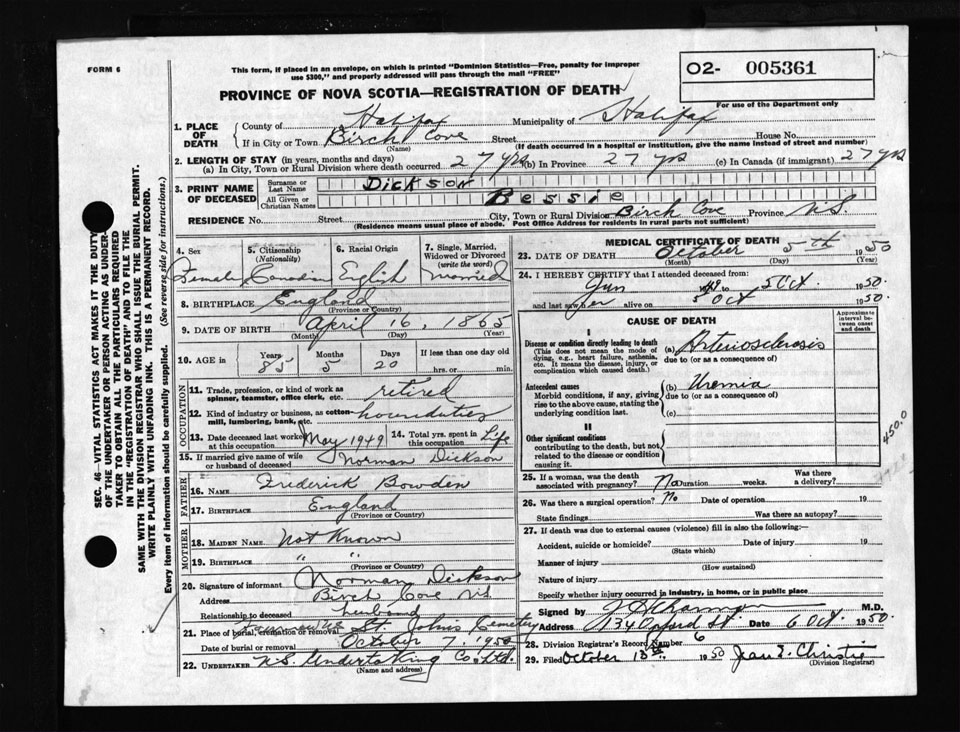 FORM 6
This form, if placed in an envelope, on which is printed "Dominion Statistics—Free, penalty for improper
use $300," and properly addressed will pass through the mail "FREE"
PROVINCE OF NOVA SCOTIA—REGISTRATION OF DEATH
02- 005361
For use of the Department only
1. PLACE OF DEATH County of Halifax Municipality of Halifax
If in City or Town Birch Cove Street House No.
(Name) (If death occurred in a hospital or institution, give the name instead of street and number)
2. LENGTH OF STAY (in years, months and days)
(a) In City, Town or Rural Division where death occurred 27 yrs (b) In Province 27 yrs (c) In Canada (if immigrant) 27 yrs
3. PRINT NAME OF DECEASED Surname or Last Name Dickson
All Given or Christian Names Bessie
RESIDENCE No. Street City, Town or Rural Division Birch Cove Province N.S.
(Residence means usual place of abode. Post Office Address for residents in rural parts not sufficient)
4. Sex Female
5. Citizenship (Nationality) Canadian
6. Racial Origin English
7. Single, Married, Widowed or Divorced (write the word) Married
8. BIRTHPLACE England
(Province or Country)
9. DATE OF BIRTH April 16, 1865
(Month) (Day) (Year)
10. AGE in Years Months Days If less than one day old
85 5 20 hrs. or min.
OCCUPATION
11. Trade, profession, or kind of work as spinner, teamster, office clerk, etc. retired
12. Kind of industry or business, as cotton-mill, lumbering, bank, etc.
13. Date deceased last worked at this occupation May 1949 14. Total yrs. spent in this occupation Life
15. If married give name of wife or husband of deceased Norman Dickson
FATHER
16. NAME Frederick Bowden
17. BIRTHPLACE England
(Province or Country)
MOTHER
18. MAIDEN NAME Not Known
19. BIRTHPLACE " "
(Province or Country)
20. Signature of informant Norman Dickson
Address Birch Cove N.S.
Relationship to deceased husband
21. Place of burial, cremation or removal St. John's Cemetery
Date of burial or removal October 7, 1950
22. UNDERTAKER N.S. Undertaking Co. Ltd.
(Name and address)
MEDICAL CERTIFICATE OF DEATH
23. DATE OF DEATH October 5th 1950
(Month) (Day)
24. I HEREBY CERTIFY that I attended deceased from:
Jun 49 to 5 Oct. 1950
and last saw her alive on 5 Oct 1950.
CAUSE OF DEATH
Approximate interval between onset and death
I
Disease or condition directly leading to death (a) Arteriosclerosis
(This does not mean the mode of dying, e.g., heart failure, asthenia, etc. It means the disease, injury, or complication which caused death.) due to (or as a consequence of)
Antecedent causes (b) Uremia
Morbid conditions, if any, giving rise to the above cause, stating the underlying condition last. due to (or as a consequence of)
(c)
450.0
II
Other significant conditions
contributing to the death, but not related to the disease or condition causing it.
25. If a woman, was the death associated with pregnancy? No Duration weeks. Was there a delivery?
26. Was there a surgical operation? No Date of operation 19
State findings Was there an autopsy?
27. If death was due to external causes (violence) fill in also the following:
Accident, suicide or homicide? Date of injury 19
(State which)
Manner of injury
(How sustained)
Nature of injury
Specify whether injury occurred in industry, in home, or in public place
Signed by M.D.
Address 134 Oxford St. Date 6 Oct. 1950.
28. Division Registrar's Record Number 6
29. Filed October 13th 1950 Jean E. Christie
(Division Registrar)
SEC. 46—VITAL STATISTICS ACT MAKES IT THE DUTY
OF THE UNDERTAKER OR PERSON ACTING AS UNDER-
TAKER TO OBTAIN ALL THE PARTICULARS REQUIRED
IN THE "REGISTRATION OF DEATH" AND TO FILE THE
SAME WITH THE DIVISION REGISTRAR WHO SHALL ISSUE THE BURIAL PERMIT.
WRITE PLAINLY WITH UNFADING INK. THIS IS A PERMANENT RECORD.
Every item of information should be carefully supplied. (See reverse side for instructions.)